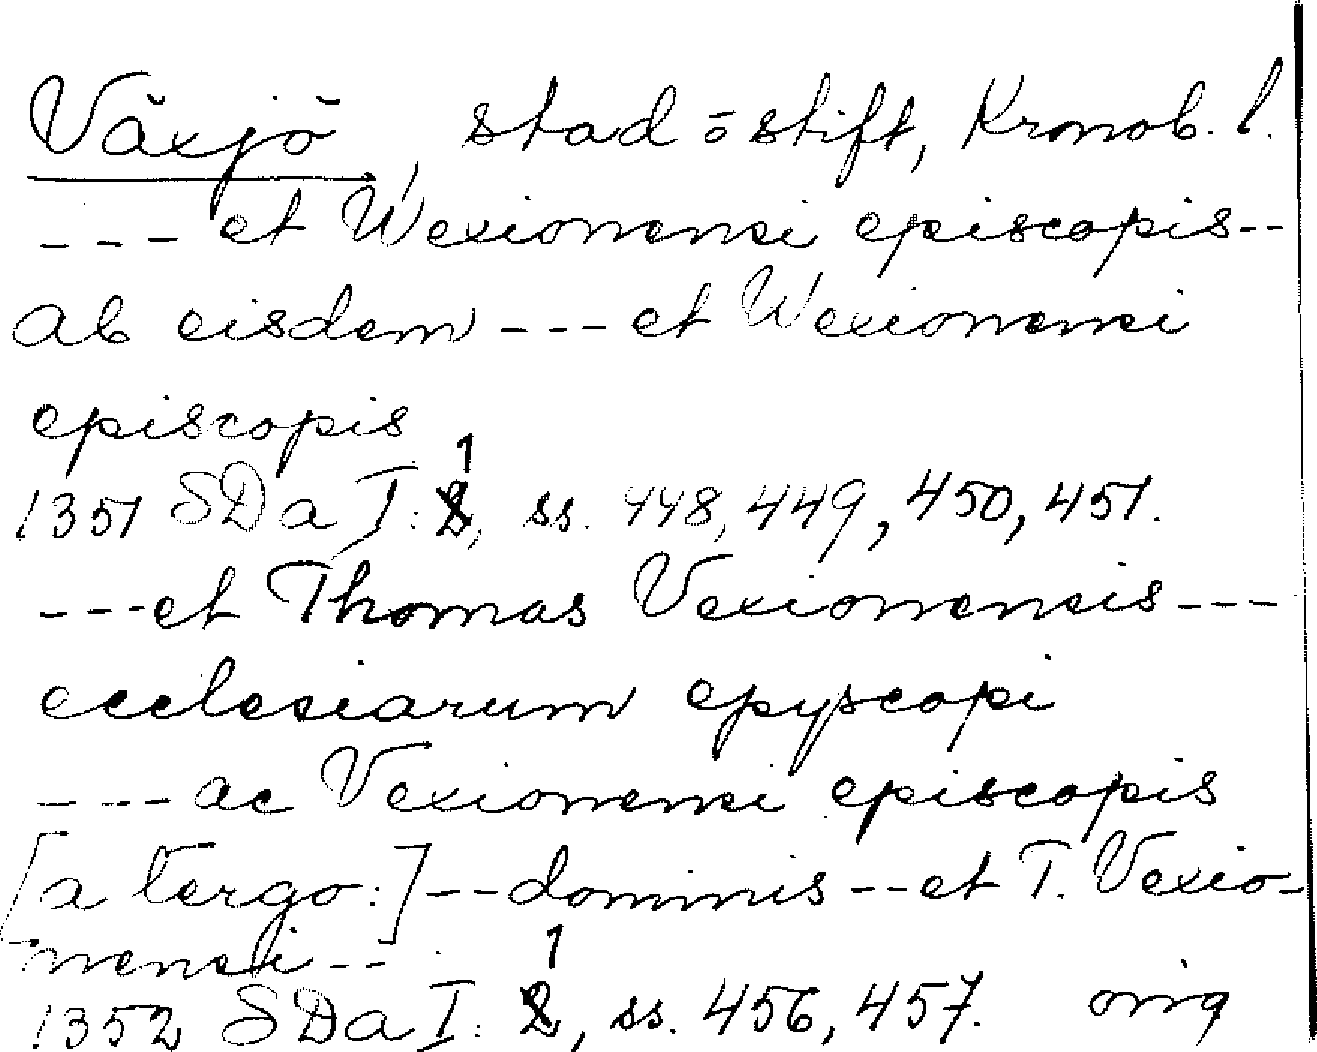 Växjö, stad o stift, Kronob. l.
--- et Wexionensi episcopis--
ab eisdem --- et Wexionensi
episcopis
1351 SDa I:1, ss. 448, 449, 450, 451.
--- et Thomas Vexionensis ---
ecclesiarum epyscopi
--- ac Vexionensi episcopis
[a tergo:] -- dominis -- et T. Vexio-
nensi ---
1352 SDa I:1, ss. 456, 457. orig